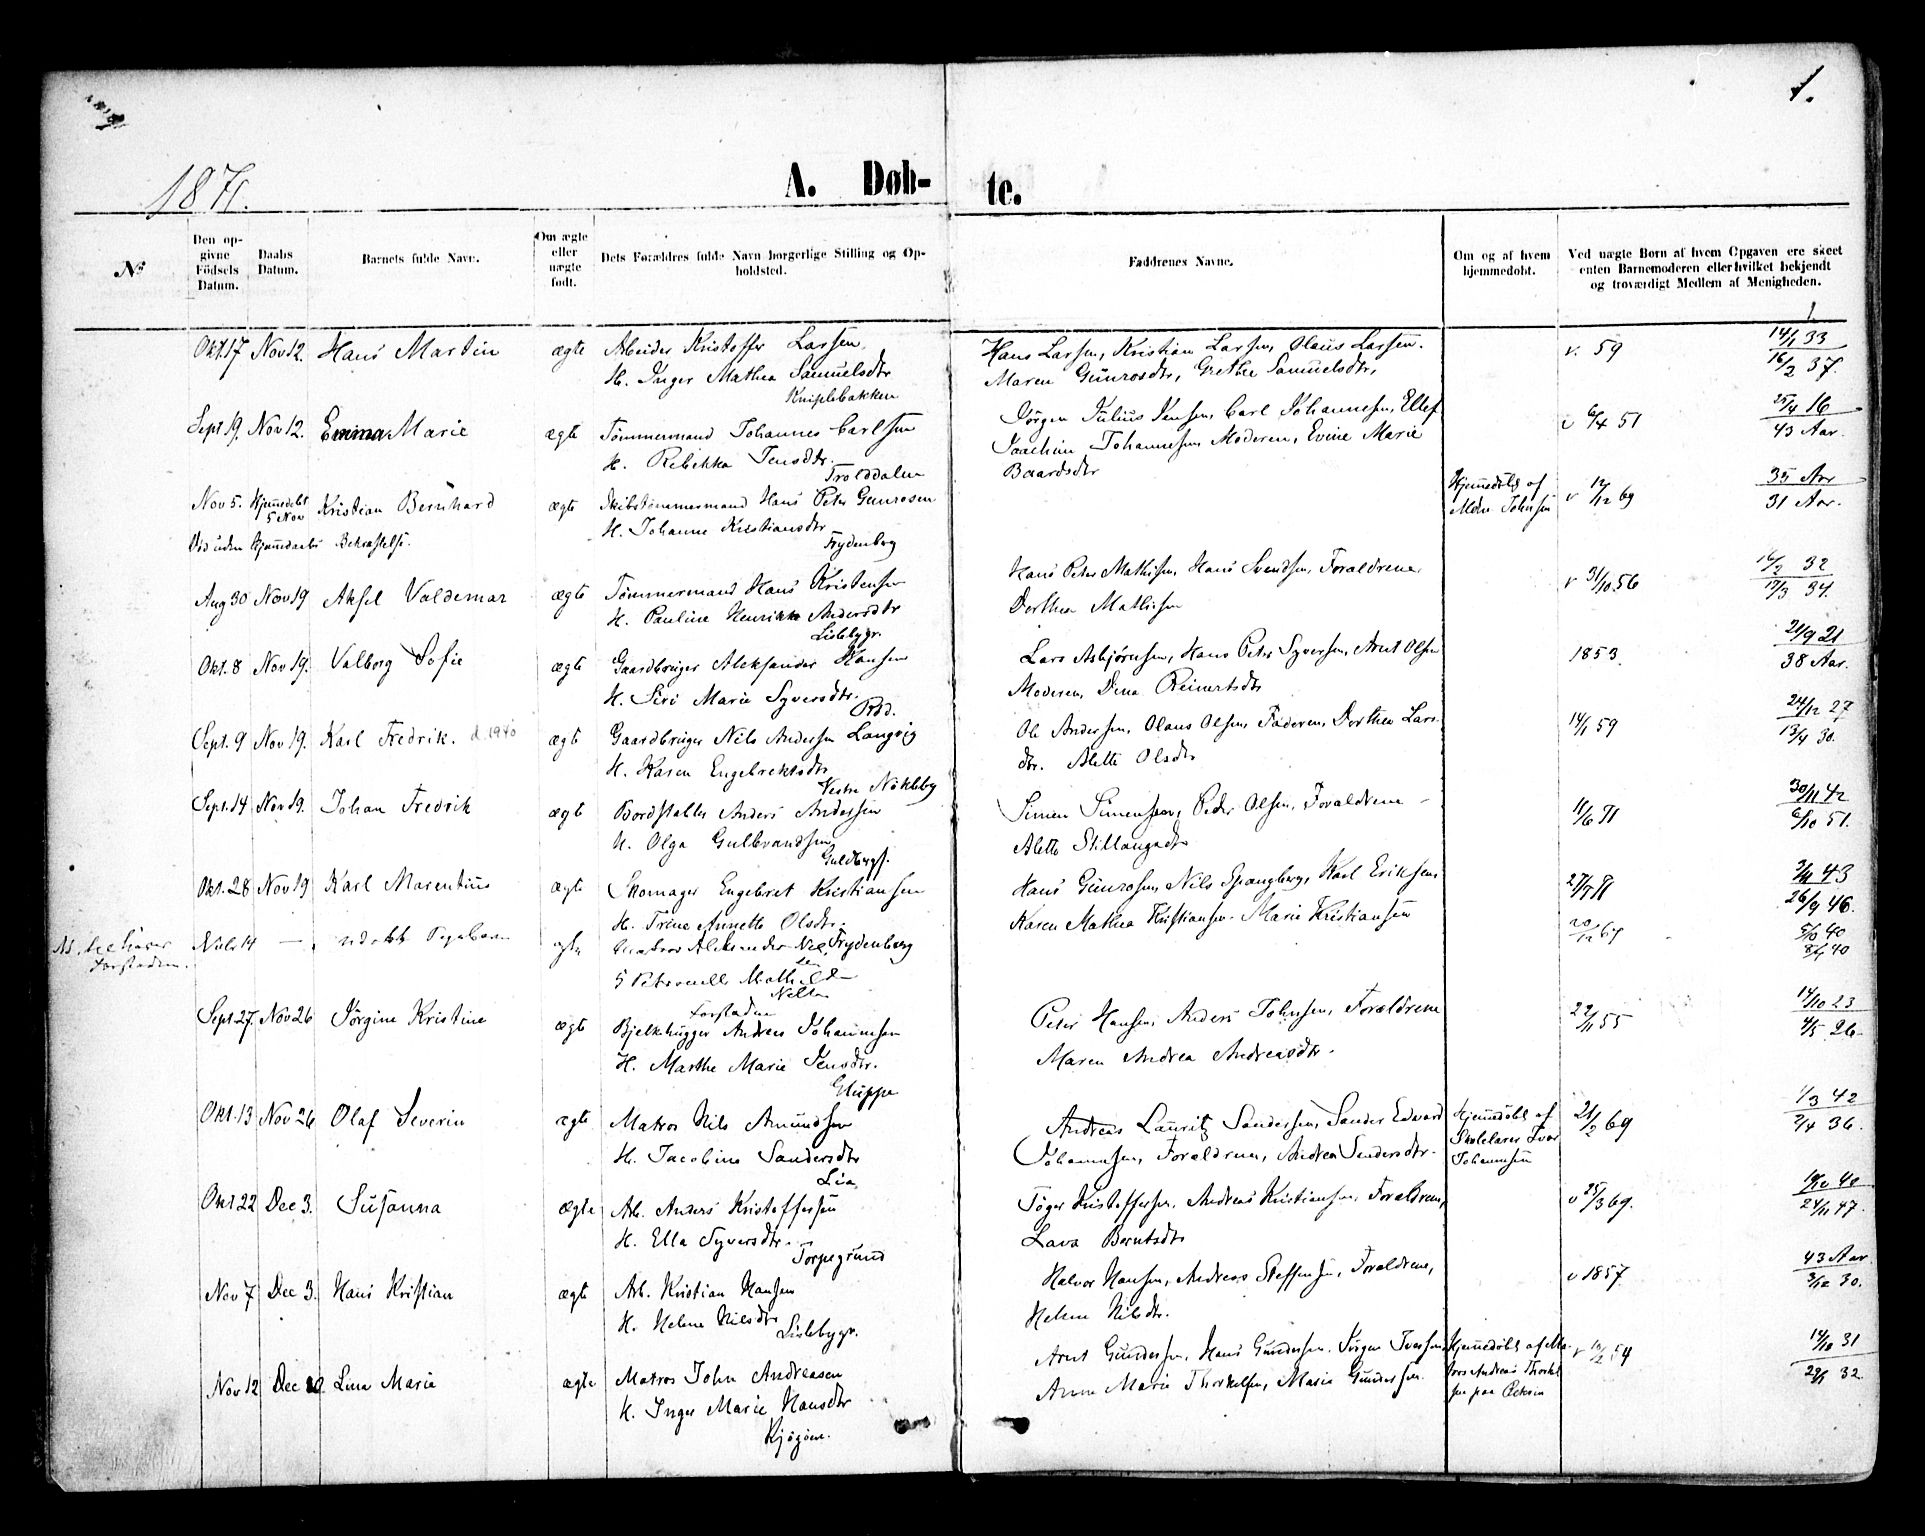 1.
1871.
A. Døb- te.
№
Den opgivne Födsels Datum.
Daabs Datum.
Barnets fulde Navn.
Om ægte eller uægte født.
Dets Forældres fulde Navn borgerlige Stilling og Opholdsted.
Faddrenes Navne.
Om og af hvem hjemmedobt.
Ved uægte Born af hvem Opgaven ere skeet enten Barnemoderen eller hvilket bekjendt og troværdigt Medlem af Menigheden.
1.
Okt. 17 Nov 12. Hans Martin ægte Arbeider Kristoffer Larsen Hans Larsen, Kristian Larsen, Olaus Larsen. v. 59 14/1 33
H. Inger Mathea Samuelsdtr Maren Gunrosdtr, Grethe Samuelsdtr, 16/2 37.
Kniplebakken
Sept 19. Nov 12. Emma Marie ægte Tømmermand Johannes Carlsen Jörgen Julius Jensen, Carl Johannesen, Ellef v 6/4 51 25/4 16
H. Rebekka Jensdtr. Joachim Johannesen, Moderen, Evine Marie 43 Aar.
Trolddalen Baardsdtr
Nov 5. Hjemmedøbt 5 Nov Kristian Bernhard ægte Skibstømmermand Hans Peter Gunrosen Hjemmedøbt af v 12/12 69 35 Aar
H. Johanne Kristiansdtr Johnsen 31 Aar.
Död uden Hjemmedaabs Bekræftelse. Frydenberg
Aug 30 Nov 19 Aksel Valdemar ægte Tömmermand Hans Kristensen Hans Peter Mathisen, Hans Svendsen, Forældrene v 31/10 56 16/2 32
H. Pauline Henrikke Andersdtr Dorthea Mathisen 17/3 34.
Lislebygr.
Okt. 8 Nov 19. Valborg Sofie ægte Gaardbruger Aleksander Hansen Lars Asbjørnsen, Hans Peter Syversen, Arnt Olsen 1853. 21/9 21
H. Siri Marie Syversdtr. Moderen, Dina Reinertsdtr 38 Aar.
Röd.
Sept. 9 Nov 19. Karl Fredrik. d. 1940 ægte Gaardbruger Nils Andersen Langvig Ole Andersen, Olaus Olsen, Faderen, Dorthea Lars- 14/1 59 24/12 27
H. Karen Engebrektsdtr dtr. Alette Olsdtr 13/4 30.
Vestre Nökleby
Sept. 14 Nov 19. Johan Fredrik ægte Bordstabler Anders Andersen Simen Simensen, Peder Olsen, Forældrene 11/6 71 30/11 42
H. Olga Gulbrandsen Alette 6/10 51.
Guldbergs.
Okt. 28 Nov 19 Karl Marentius ægte Skomager Engebret Kristiansen Hans Gunrosen, Nils Spangberg, Karl Eriksen, 27/7 71 3/11 43
H. Trine Annette Olsdtr. Karen Mathea Kristiansen. Marie Kristiansen 26/9 46.
Frydenberg
14 — ægte Matros Aleksander 20/12 67 5/10 40
Petronelle Mathilde 40
Forstaden
Sept 27. Nov 26 Jörgine Kristine ægte Bjelkehugger Andreas Johannesen Peter Hansen, Anders Johnsen, Forældrene 22/11 55 14/10 23
H. Marthe Marie Jensdtr. Maren Andrea Andreasdtr. 4/5 26
Gluppe
Okt. 13 Nov 26 Olaf Severin ægte Matros Nils Amundsen Andreas Lauritz Sandersen, Sander Edvard Hjemmedøbt af 21/2 69 1/3 42
H. Jacobine Sandersdtr Johannesen, Forældrene, Andrea Sandersdtr. Skolelærer Iver Johannesen 7/4 36.
Lia
Okt 22 Dec 3. Susanna ægte Arb. Anders Kristoffersen Töger Kristoffersen, Andreas Kristiansen, Forældrene, v 25/3 69. 19/10 40
H. Ella Syversdtr. Lava Berntsdtr 24/11 47.
Torpegrund
Nov 7 Dec 3. Hans Kristian ægte Arb. Kristian Hansen Halvor Hansen, Andreas Steffensen, Forældrene, v 1857. 43 Aar
H. Helene Nilsdtr Helene Nilsdtr. 3/12 30.
Lislebygr.
Nov 12 Dec 10. Lina Marie ægte Matros John Andreasen Arnt Gundersen, Hans Gundersen, Jörgen Iversen, Hjemmedøbt af Ma- v 10/2 54 14/10 31
H. Inger Marie Hansdtr Anne Marie Thorkelsen, Marie Gundersen. tros Andreas Thorkelsen paa 32.
Kjøgöen.